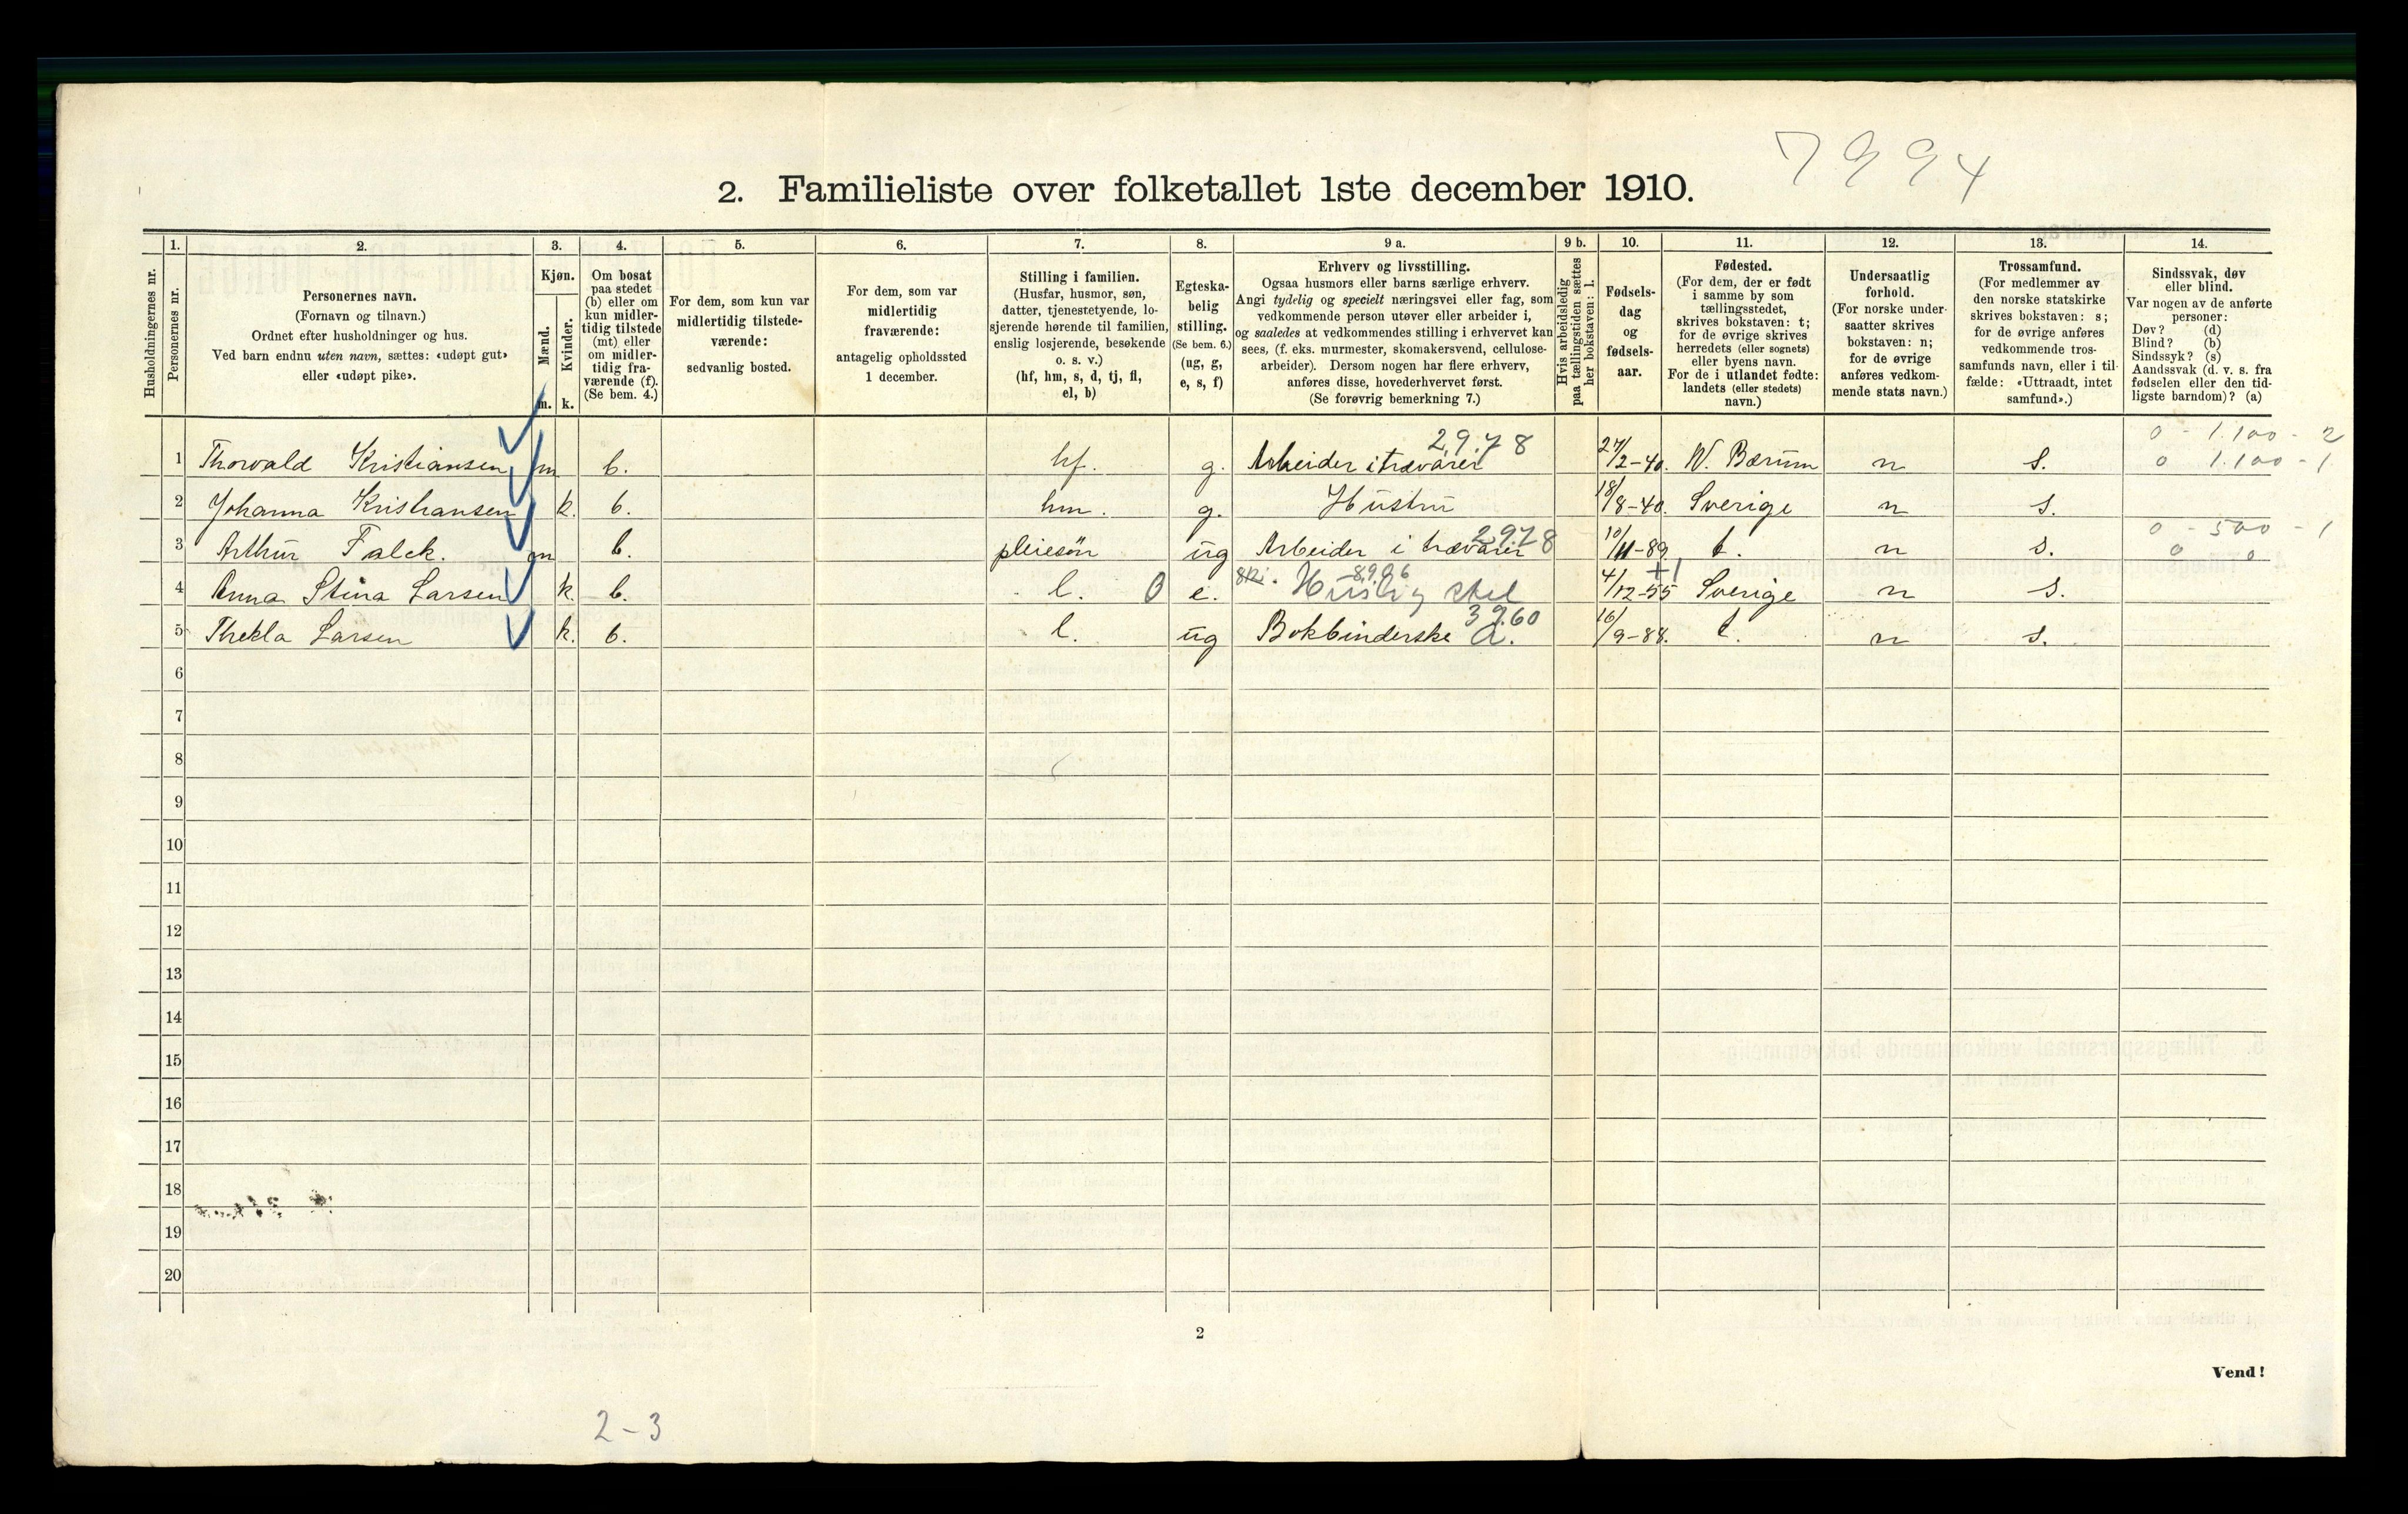 7994
2. Familieliste over folketallet 1ste december 1910.
Husholdningernes nr.
1.
Personernes nr.
2.
Personernes navn.
(Fornavn og tilnavn.)
Ordnet efter husholdninger og hus.
Ved barn endnu uten navn, sættes: «udøpt gut»
eller «udøpt pike».
3.
Kjøn.
Mænd.
Kvinder.
m. k.
4.
Om bosat
paa stedet
(b) eller om
kun midler-
tidig tilstede
(mt) eller
om midler-
tidig fra-
værende (f).
(Se bem. 4.)
5.
For dem, som kun var
midlertidig tilstede-
værende:
sedvanlig bosted.
6.
For dem, som var
midlertidig
fraværende:
antagelig opholdssted
1 december.
7.
Stilling i familien.
(Husfar, husmor, søn,
datter, tjenestetyende, lo-
sjerende hørende til familien,
enslig losjerende, besøkende
o. s. v.)
(hf, hm, s, d, tj, fl,
el, b)
8.
Egteska-
belig
stilling.
(Se bem. 6.)
(ug, g,
e, s, f)
9 a.
Erhverv og livsstilling.
Ogsaa husmors eller barns særlige erhverv.
Angi tydelig og specielt næringsvei eller fag, som
vedkommende person utøver eller arbeider i,
og saaledes at vedkommendes stilling i erhvervet kan
sees, (f. eks. murmester, skomakersvend, cellulose-
arbeider). Dersom nogen har flere erhverv,
anføres disse, hovederhvervet først.
(Se forøvrig bemerkning 7.)
9 b.
Hvis arbeidsledig
paa tællingstiden sættes
her bokstaven: l.
10.
Fødsels-
dag
og
fødsels-
aar.
11.
Fødested.
(For dem, der er født
i samme by som
tællingsstedet,
skrives bokstaven: t;
for de øvrige skrives
herredets (eller sognets)
eller byens navn.
For de i utlandet fødte:
landets (eller stedets)
navn.)
12.
Undersaatlig
forhold.
(For norske under-
saatter skrives
bokstaven: n;
for de øvrige
anføres vedkom-
mende stats navn.)
13.
Trossamfund.
(For medlemmer av
den norske statskirke
skrives bokstaven: s;
for de øvrige anføres
vedkommende tros-
samfunds navn, eller i til-
fælde: «Uttraadt, intet
samfund».)
14.
Sindssvak, døv
eller blind.
Var nogen av de anførte
personer:
Døv? (d)
Blind? (b)
Sindssyk? (s)
Aandssvak (d. v. s. fra
fødselen eller den tid-
ligste barndom)? (a)
2978 0 - 1.100 - 2
1 Thorvald Kristiansen m b. hf. g. Arbeider i trævarer 27/2-40. V. Bærum n s. 0 1.100 - 1
2 Johanna Kristiansen k. b. hm. g. Hustru 18/8-40. Sverige n s.
2978 0 - 500 - 1
3 Arthur Falck. m b. pleiesøn ug Arbeider i trævarer 10/11-89 t. n s. 0 0
8906 +1
4 Anna Stina Larsen k. b. l. 0 e. Huslig stel 4/12-55 Sverige n s.
3960
5 Thekla Larsen k. b. l. ug Bokbinderske a. 16/9-88. t. n s.
6
7
8
9
10
11
12
13
14
15
16
17
18
19
20
2
Vend!
2-3